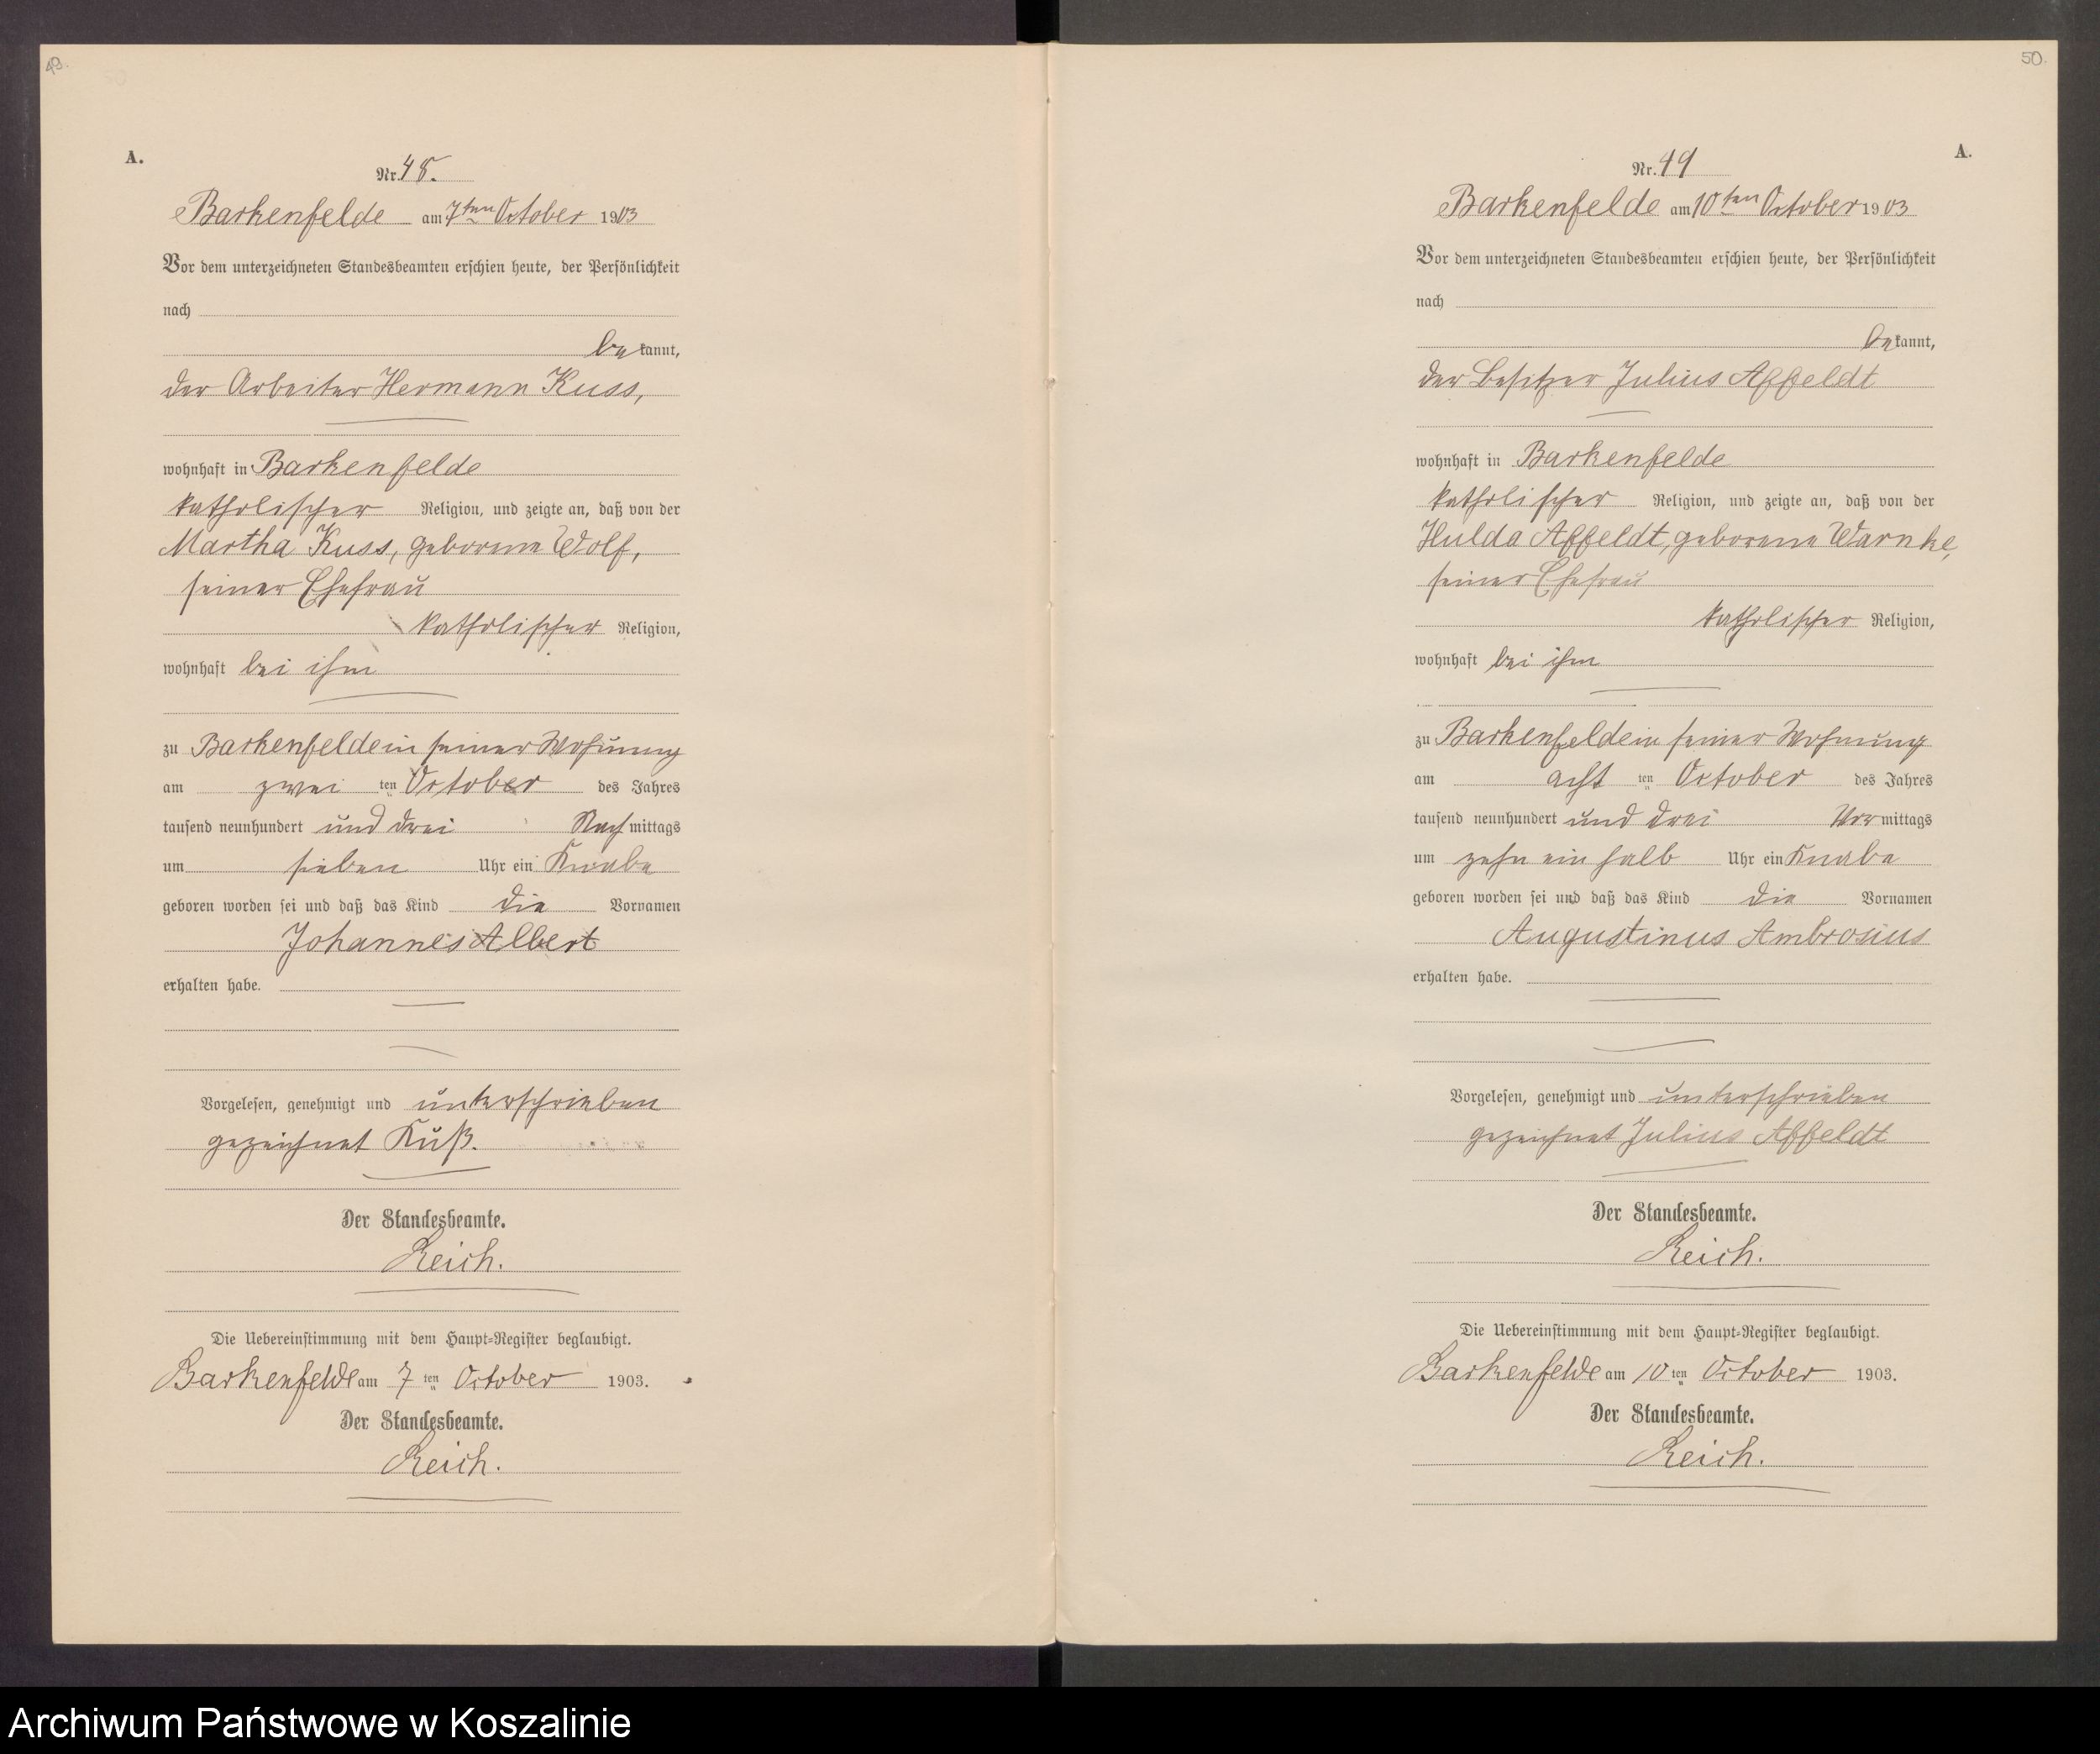 49.
A.
Nr. 48.
Barkenfelde am 7ten October 1903
Vor dem unterzeichneten Standesbeamten erschien heute, der Persönlichkeit
nach
bekannt,
der Arbeiter Hermann Kuss,
wohnhaft in Barkenfelde
katholischer Religion, und zeigte an, daß von der
Martha Kuss, geborene Wolf,
seiner Ehefrau
katholischer Religion,
wohnhaft bei ihm
zu Barkenfelde in seiner Wohnung
am zwei ten October des Jahres
tausend neunhundert und drei Nachmittags
um sieben Uhr ein Knabe
geboren worden sei und daß das Kind die Vornamen
Johannes Albert
erhalten habe.
Vorgelesen, genehmigt und unterschrieben
gezeichnet Kuß.
Der Standesbeamte.
Reich.
Die Uebereinstimmung mit dem Haupt-Register beglaubigt.
Barkenfelde am 7 ten October 1903.
Der Standesbeamte.
Reich.
50.
A.
Nr. 49
Barkenfelde am 10ten October 1903
Vor dem unterzeichneten Standesbeamten erschien heute, der Persönlichkeit
nach
bekannt,
der Besitzer Julius Affeldt
wohnhaft in Barkenfelde
katholischer Religion, und zeigte an, daß von der
Hulda Affeldt, geborene Warnke,
seiner Ehefrau
katholischer Religion,
wohnhaft bei ihm
zu Barkenfelde in seiner Wohnung
am acht ten October des Jahres
tausend neunhundert und drei Vormittags
um zehn ein halb Uhr ein Knabe
geboren worden sei und daß das Kind die Vornamen
Augustinus Ambrosius
erhalten habe.
Vorgelesen, genehmigt und unterschrieben
gezeichnet Julius Affeldt
Der Standesbeamte.
Reich.
Die Uebereinstimmung mit dem Haupt-Register beglaubigt.
Barkenfelde am 10 ten October 1903.
Der Standesbeamte.
Reich.
Archiwum Państwowe w Koszalinie